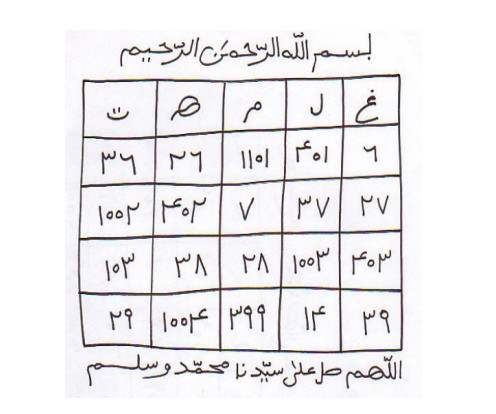 بسم الله الرّحمٰن الرّحيم
غ ل م ھ ت
٦ ۴٠١ ١١٠١ ٢٦ ٣٦
٢٧ ٣٧ ٧ ۴٠٢ ١٠٠٢
۴٠٣ ١٠٠٣ ٢٨ ٣٨ ١٠٣
٣٩ ١۴ ٣٩٩ ١٠٠۴ ٢٩
اللّٰهم صل على سيّدنا محمّد وسلم